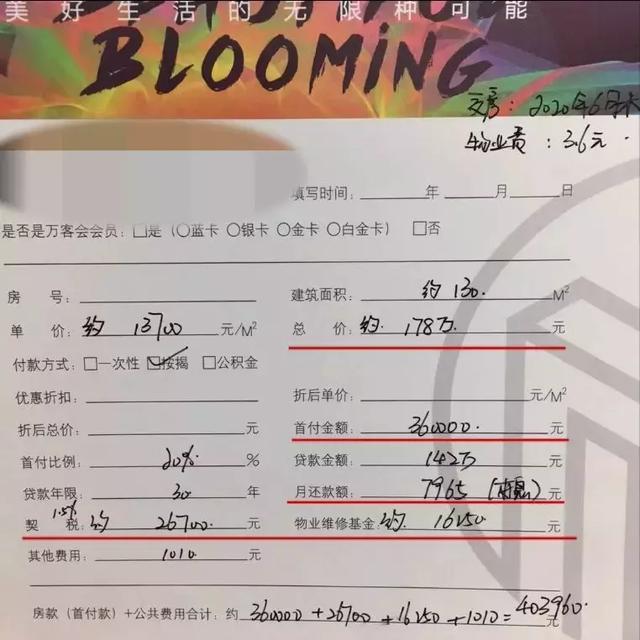 美好生活的无限种可能
BLOOMING
交房：2020年6月底
物业费：3.6元
填写时间：____年____月____日
是否是万客会会员：□是（○蓝卡 ○银卡 ○金卡 ○白金卡） □否
房 号： 建筑面积：约130. M²
单 价：约 13700 元/M² 总 价：约. 178万. 元
付款方式：□一次性 ☑按揭 □公积金
优惠折扣： 折后单价： 元/M²
折后总价： 元 首付金额：360000. 元
首付比例：20% % 贷款金额：142万 元
贷款年限：30 年 月还款额：7965 元
1.5%
契 税：约 26700. 元 物业维修基金：约. 16250 元
其他费用：1010 元
房款（首付款）+公共费用合计：约 360000+26700+16250+1010=403960. 元